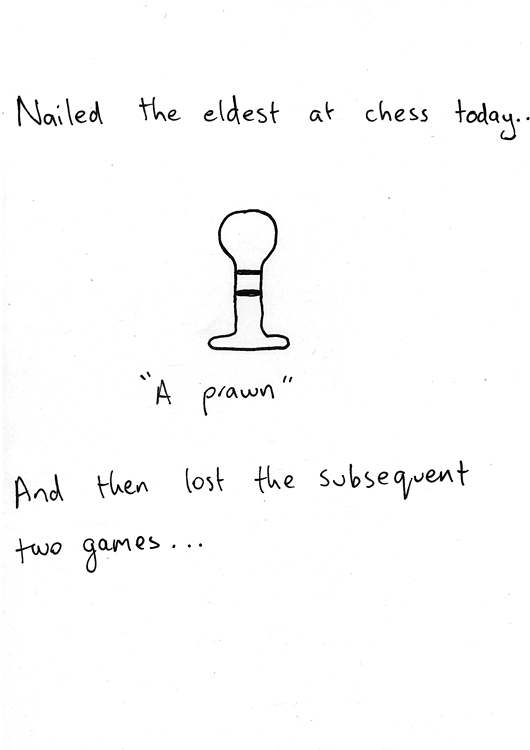 Nailed the eldest at chess today..
"A prawn"
And then lost the subsequent
two games...